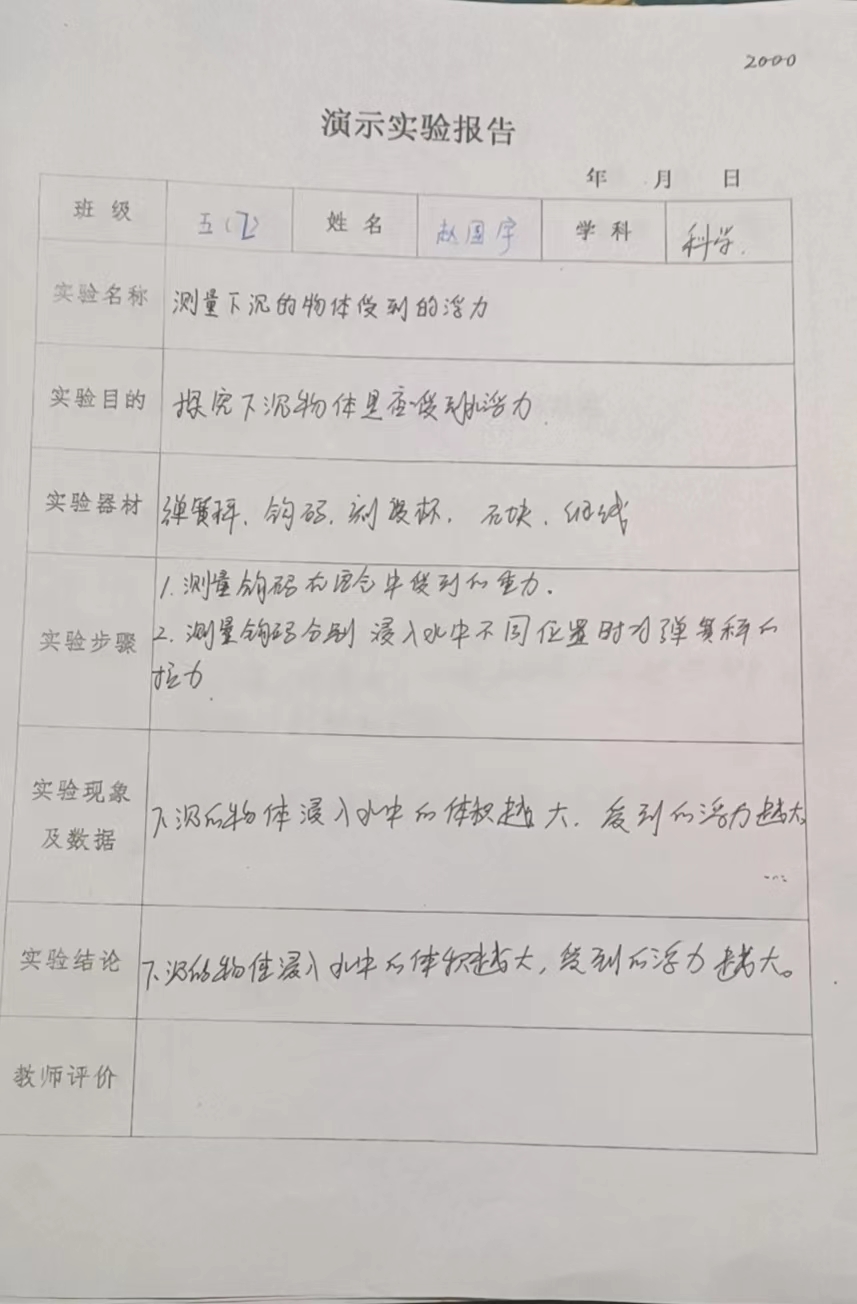 2000
演示实验报告
年 月 日
班级 五(2) 姓名 赵国宇 学科 科学.
实验名称 测量下沉的物体受到的浮力
实验目的 探究下沉物体是否受到水浮力.
实验器材 弹簧秤、钩码、刻度杯、石块、细线
实验步骤
1.测量钩码在空气中受到的重力.
2.测量钩码分别浸入水中不同位置时对弹簧秤的
拉力.
实验现象
及数据
下沉的物体浸入水中的体积越大.受到的浮力越大
实验结论 下沉的物体浸入水中的体积越大,受到的浮力越大。
教师评价